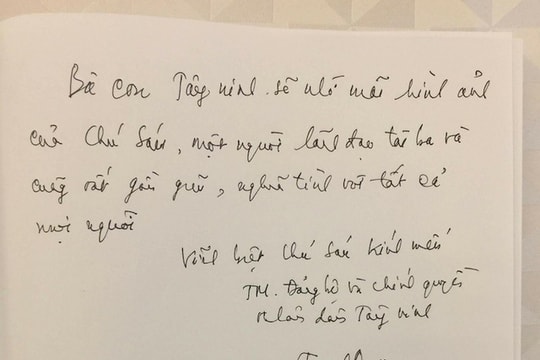 Bà con Tây ninh sẽ nhớ mãi hình ảnh
của Chú Sáu, một người lãnh đạo tài ba và
cũng rất gần gũi, nghĩa tình với tất cả
mọi người
Vĩnh biệt Chú Sáu kính mến
TM. Đảng bộ và chính quyền
Nhân dân Tây ninh